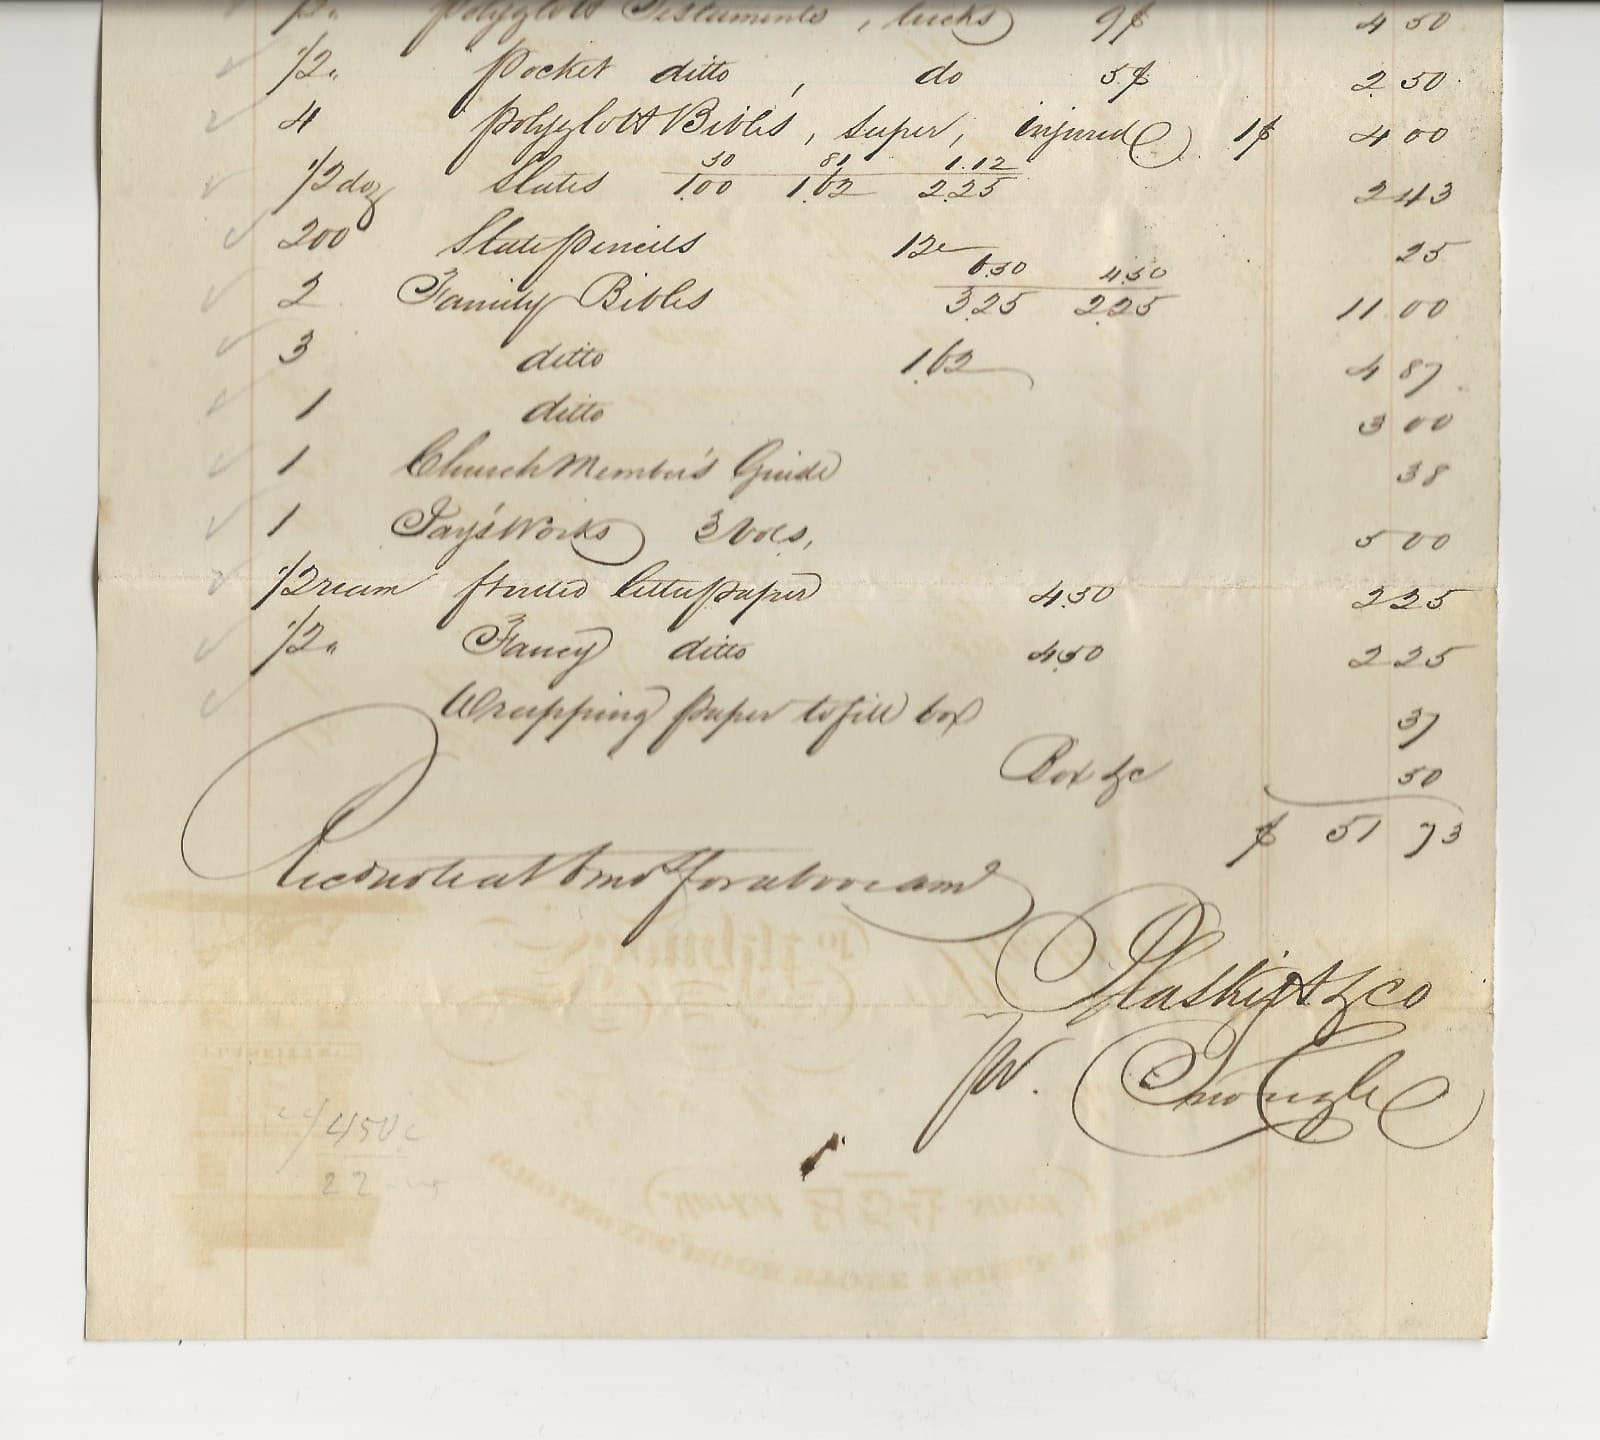 1/2 " Polyglott Testaments, tucks 9$ 4 50
1/2 " Pocket ditto, do 5$ 2 50
4 Polyglott Bibles, super, injured 1$ 4 00
50 81 1.12
1/2 doz Slates 1.00 1.62 2.25 2 43
200 Slate pencils 12c 25
6.50 4.50
2 Family Bibles 3.25 2.25 11 00
3 ditto 1.62 4 87
1 ditto 3 00
1 Church Member's Guide 38
1 Jay's Works 3 Vols, 5 00
1/2 ream letter paper 4.50 2 25
1/2 " Fancy ditto 4.50 2 25
Wrapping paper to fill box 37
Box &c 50
$ 51 73
Rec'd note at 6 mos for above amt
Plaskitt & Co
pr.
450c
22